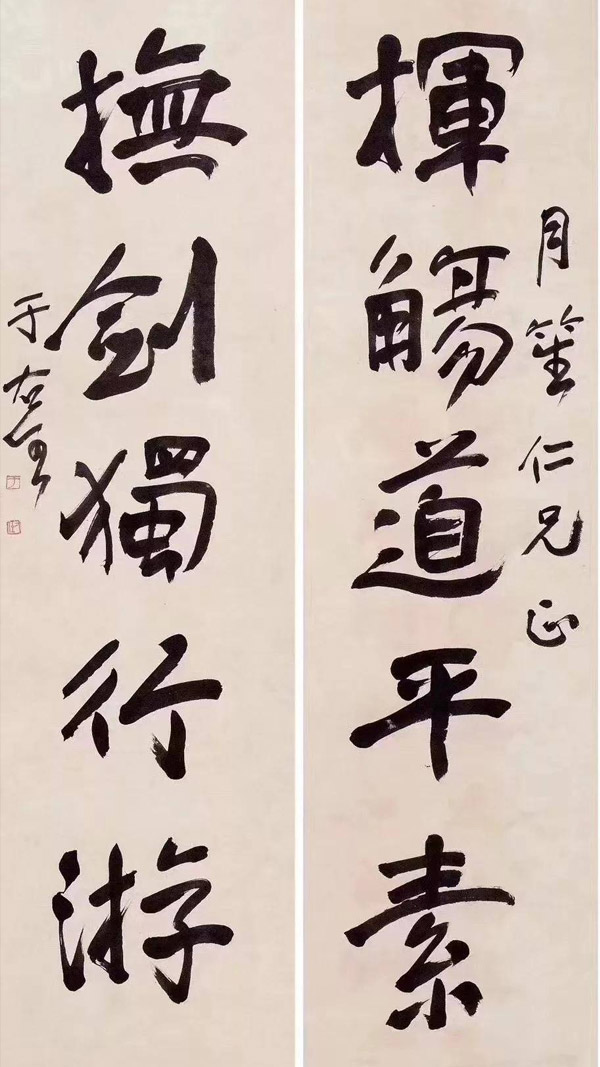 月笙仁兄正
揮觴道平素
撫劍獨行游
于右任